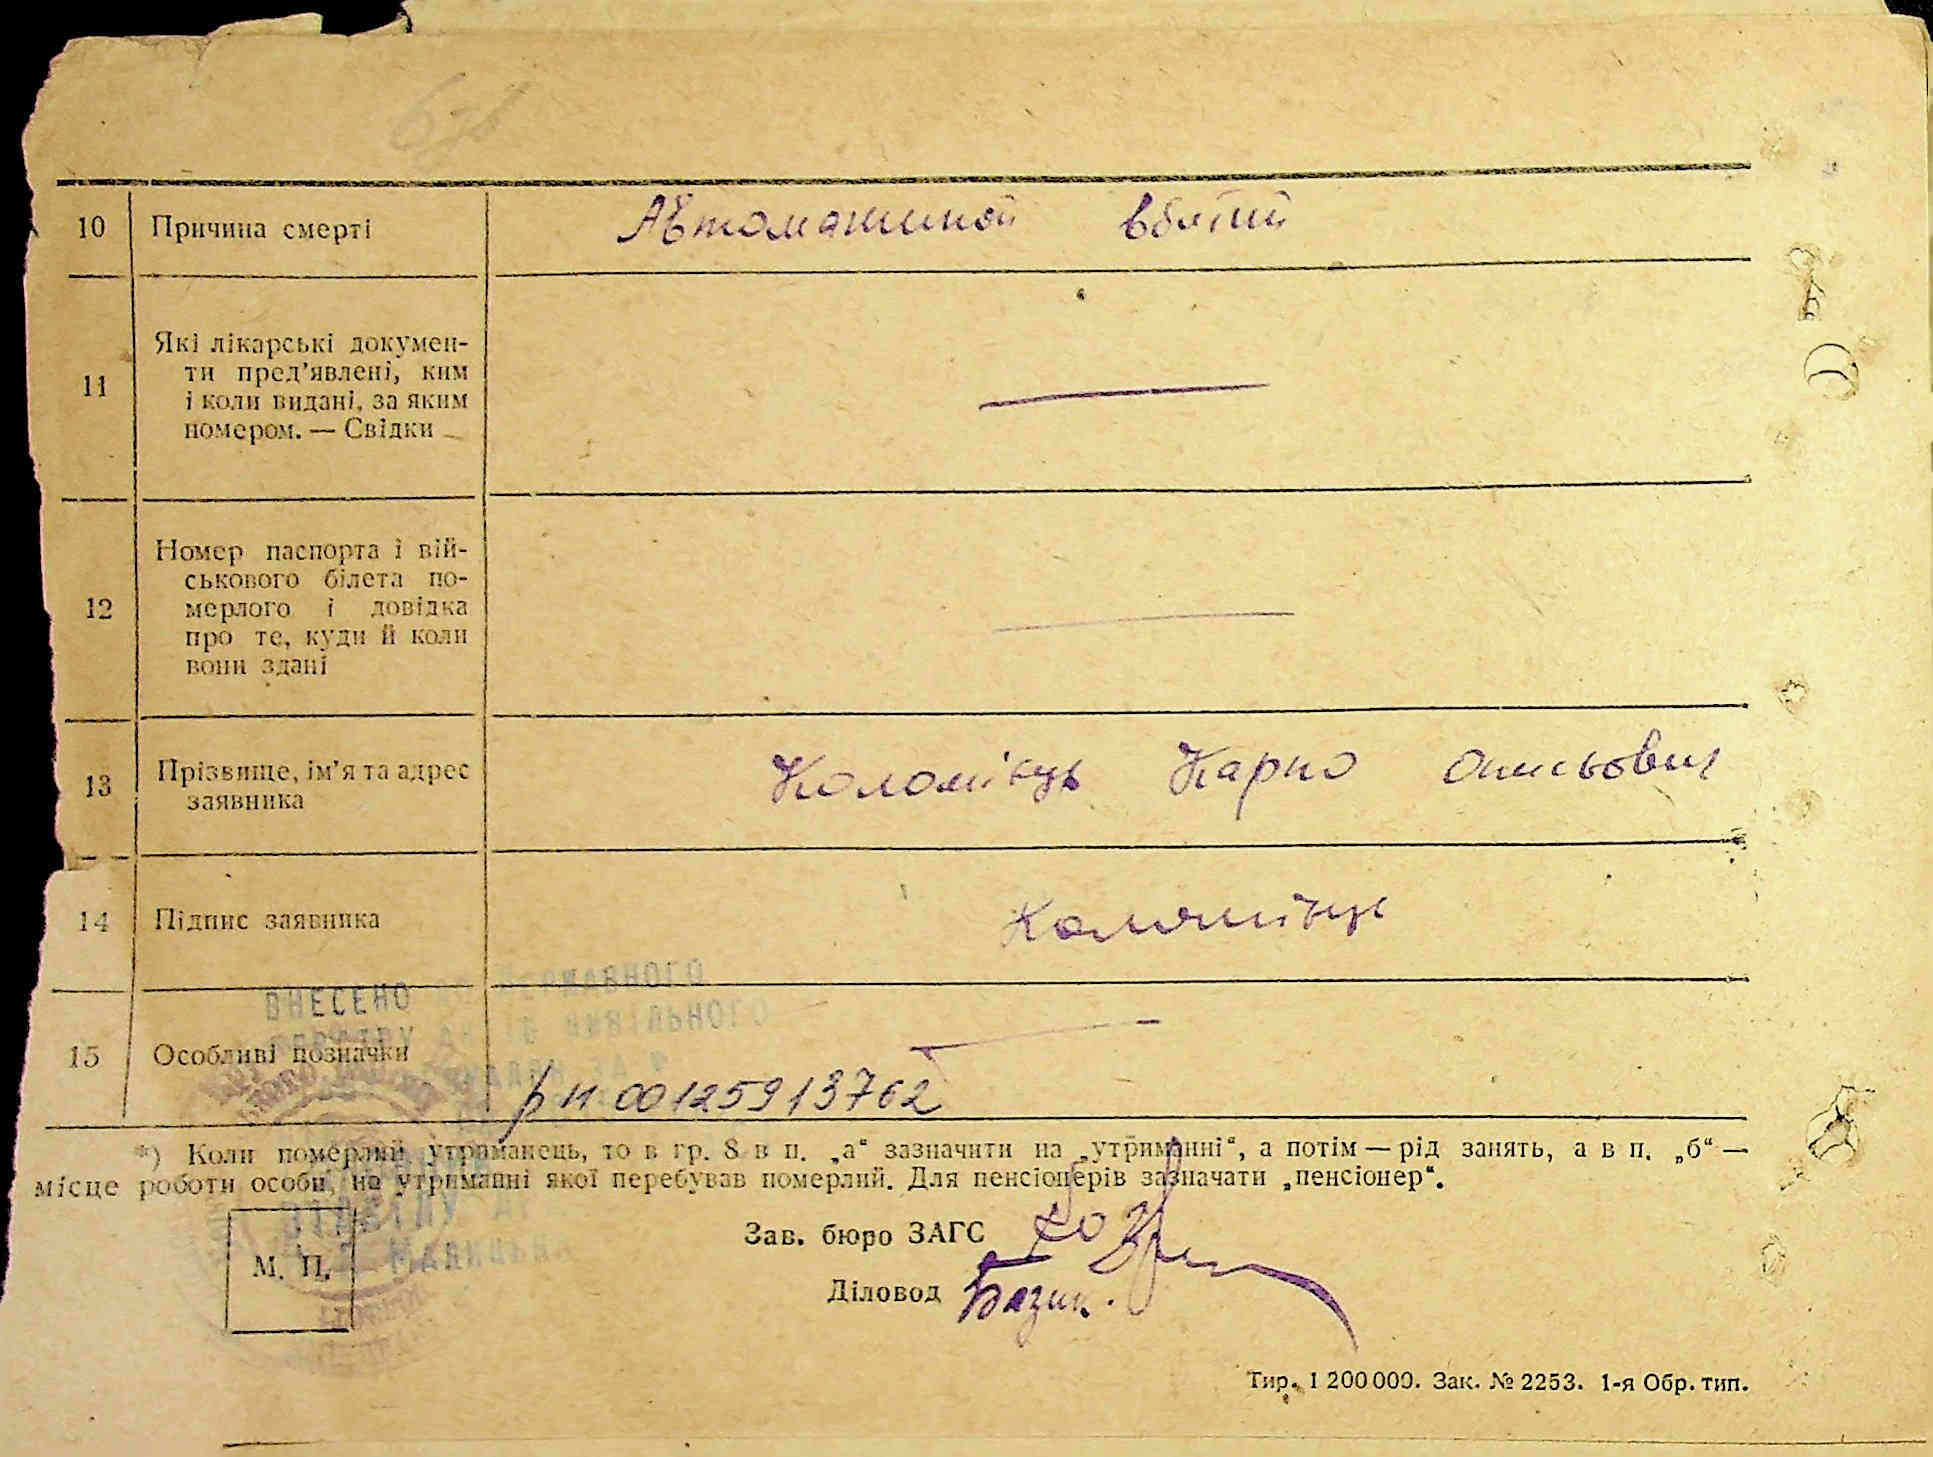 10 Причина смерті Автомашиной вбитий
11 Які лікарські докумен-
ти пред'явлені, ким
і коли видані, за яким
номером. — Свідки —
12 Номер паспорта і вій-
ськового білета по-
мерлого і довідка
про те, куди й коли
вони здані
13 Прізвище, ім'я та адрес
заявника
Коломієць Карпо
14 Підпис заявника Коломієць
ВНЕСЕНО ДО ДЕРЖАВНОГО
15 Особливі позначки
рн 00125913762
*) Коли померлий утриманець, то в гр. 8 в п. „а“ зазначити на „утриманні“, а потім — рід занять, а в п. „б“ —
місце роботи особи, на утриманні якої перебував померлий. Для пенсіонерів зазначати „пенсіонер“.
Зав. бюро ЗАГС
М. П.
Діловод
Тир. 1 200 000. Зак. № 2253. 1-я Обр. тип.